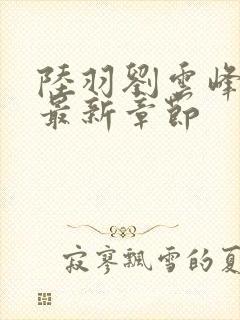 陸羽劉雲峰
最新章節
寂寥飄雪的夏